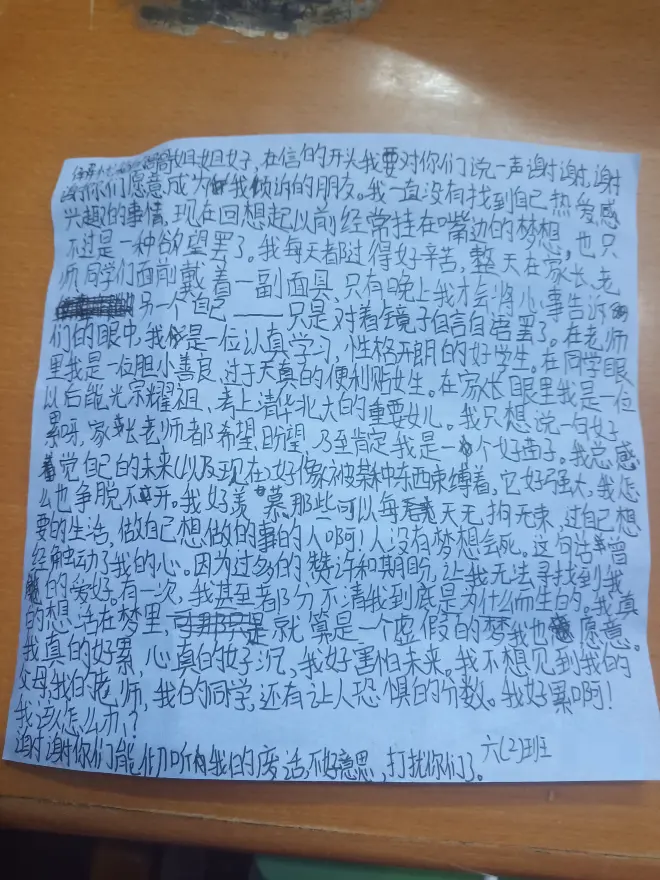 哥哥姐姐好,在信的开头我要对你们说一声谢谢,谢
谢你们愿意成为我倾诉的朋友。我一直没有找到自己热爱感
兴趣的事情,现在回想起以前经常挂在嘴边的梦想,也只
不过是一种欲望罢了。我每天都过得好辛苦,整天在家长、老
师、同学们面前戴着一副面具,只有晚上我才会将心事告诉
另一个自己——只是对着镜子自言自语罢了。在老师
们的眼中,我是一位认真学习,性格开朗的好学生。在同学眼
里我是一位胆小善良、过于天真的便利贴女生。在家长眼里我是一位
以后能光宗耀祖、考上清华北大的重要女儿。我只想说一句好
累呀,家长老师都希望、盼望乃至肯定我是一个好苗子。我总感
觉自己的未来(以及现在)好像被某种东西束缚着,它好强大,我怎
么也争脱不开。我好羡慕那些可以每天无拘无束,过自己想
要的生活,做自己想做的事的人啊!人没有梦想会死。这句话曾
经触动了我的心。因为过多的赞许和期盼,让我无法寻找到我
的爱好。有一次,我甚至都分不清我到底是为什么而生的。我真
的想活在梦里,就算是一个虚假的梦我也愿意。
我真的好累,心真的好沉,我好害怕未来。我不想见到我的
父母,我的老师,我的同学,还有让人恐惧的分数。我好累啊!
我该怎么办?
谢谢你们能倾听我的废话,不好意思,打扰你们了。六(2)班